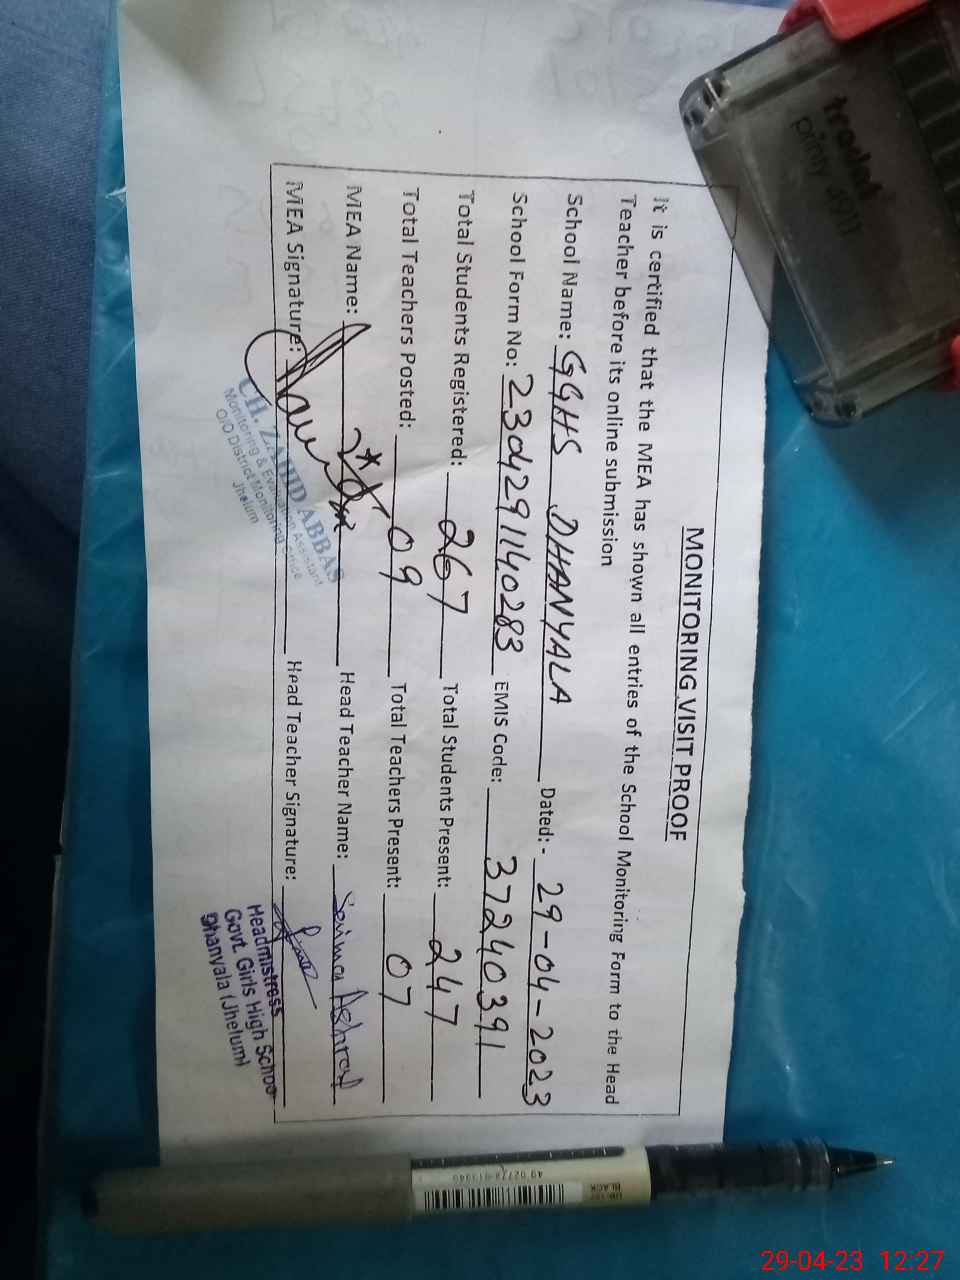 MONITORING VISIT PROOF
It is certified that the MEA has shown all entries of the School Monitoring Form to the Head
Teacher before its online submission
School Name: GGHS DHANYALA Dated:- 29-04-2023
School Form No: 230429140283 EMIS Code: 37240391
Total Students Registered: 267 Total Students Present: 247
Total Teachers Posted: 09 Total Teachers Present: 07
MEA Name: Head Teacher Name: Ashraf
MEA Signature: Head Teacher Signature:
CH. ZAHID ABBAS
Monitoring & Evaluation Assistant
O/O District Monitoring Office
Jhelum
Headmistress
Govt. Girls High School
Dhanyala (Jhelum)
trodat
printy 4911
UB-157
BLACK
29-04-23 12:27